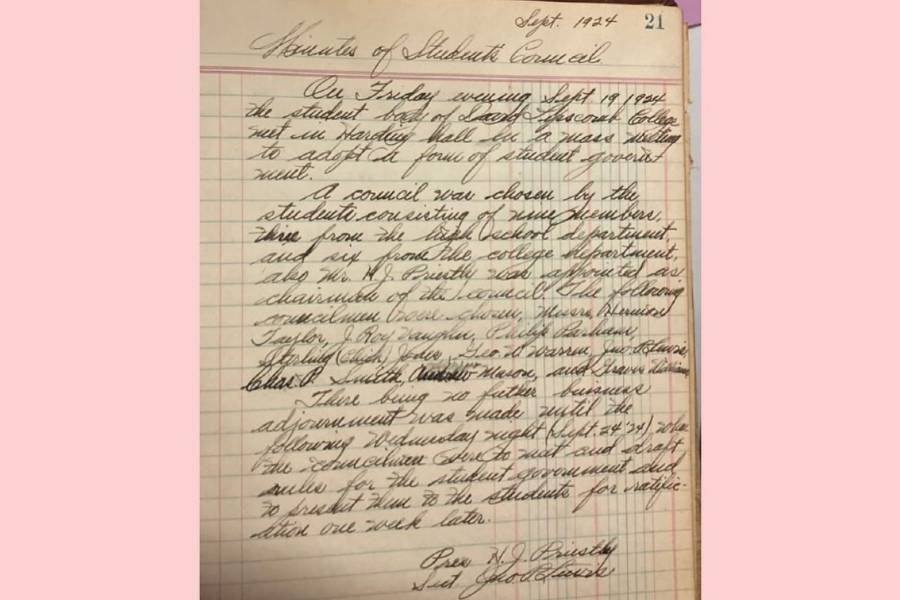 Sept. 1924 21
Minutes of Students Council
On Friday evening Sept. 19, 1924
the student body of David Lipscomb College
met in Harding Hall in a mass meeting
to adopt a form of student govern-
ment.
A council was chosen by the
students consisting of nine members,
three from the high school department
and six from the college department,
also Mr. H. J. Priestly was appointed as
chairman of the council. The following
councilmen were chosen, Messrs, Hermon
Taylor, J. Roy Vaughn, Philip Parham
Sterling (Chick) Jones, Geo. W. Warren, Jno. P. Lewis
Chas. P. Smith, Andrew Mason, and Travis
There being no futher buisness
adjournment was made until the
following Wednesday night (Sept. 24 '24) when
the councilmen were to meet and draft
rules for the student government and
to present them to the students for ratific-
ation one week later.
Pres H. J. Priestly
Sect Jno P. Lewis